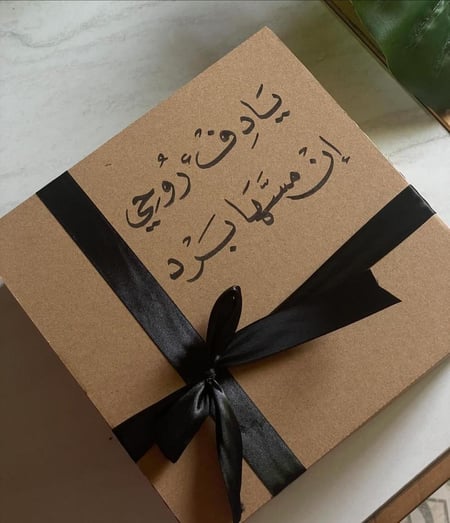 يَادِفْءُ رُوحِي
إنْ مسَّهَا بَرْد